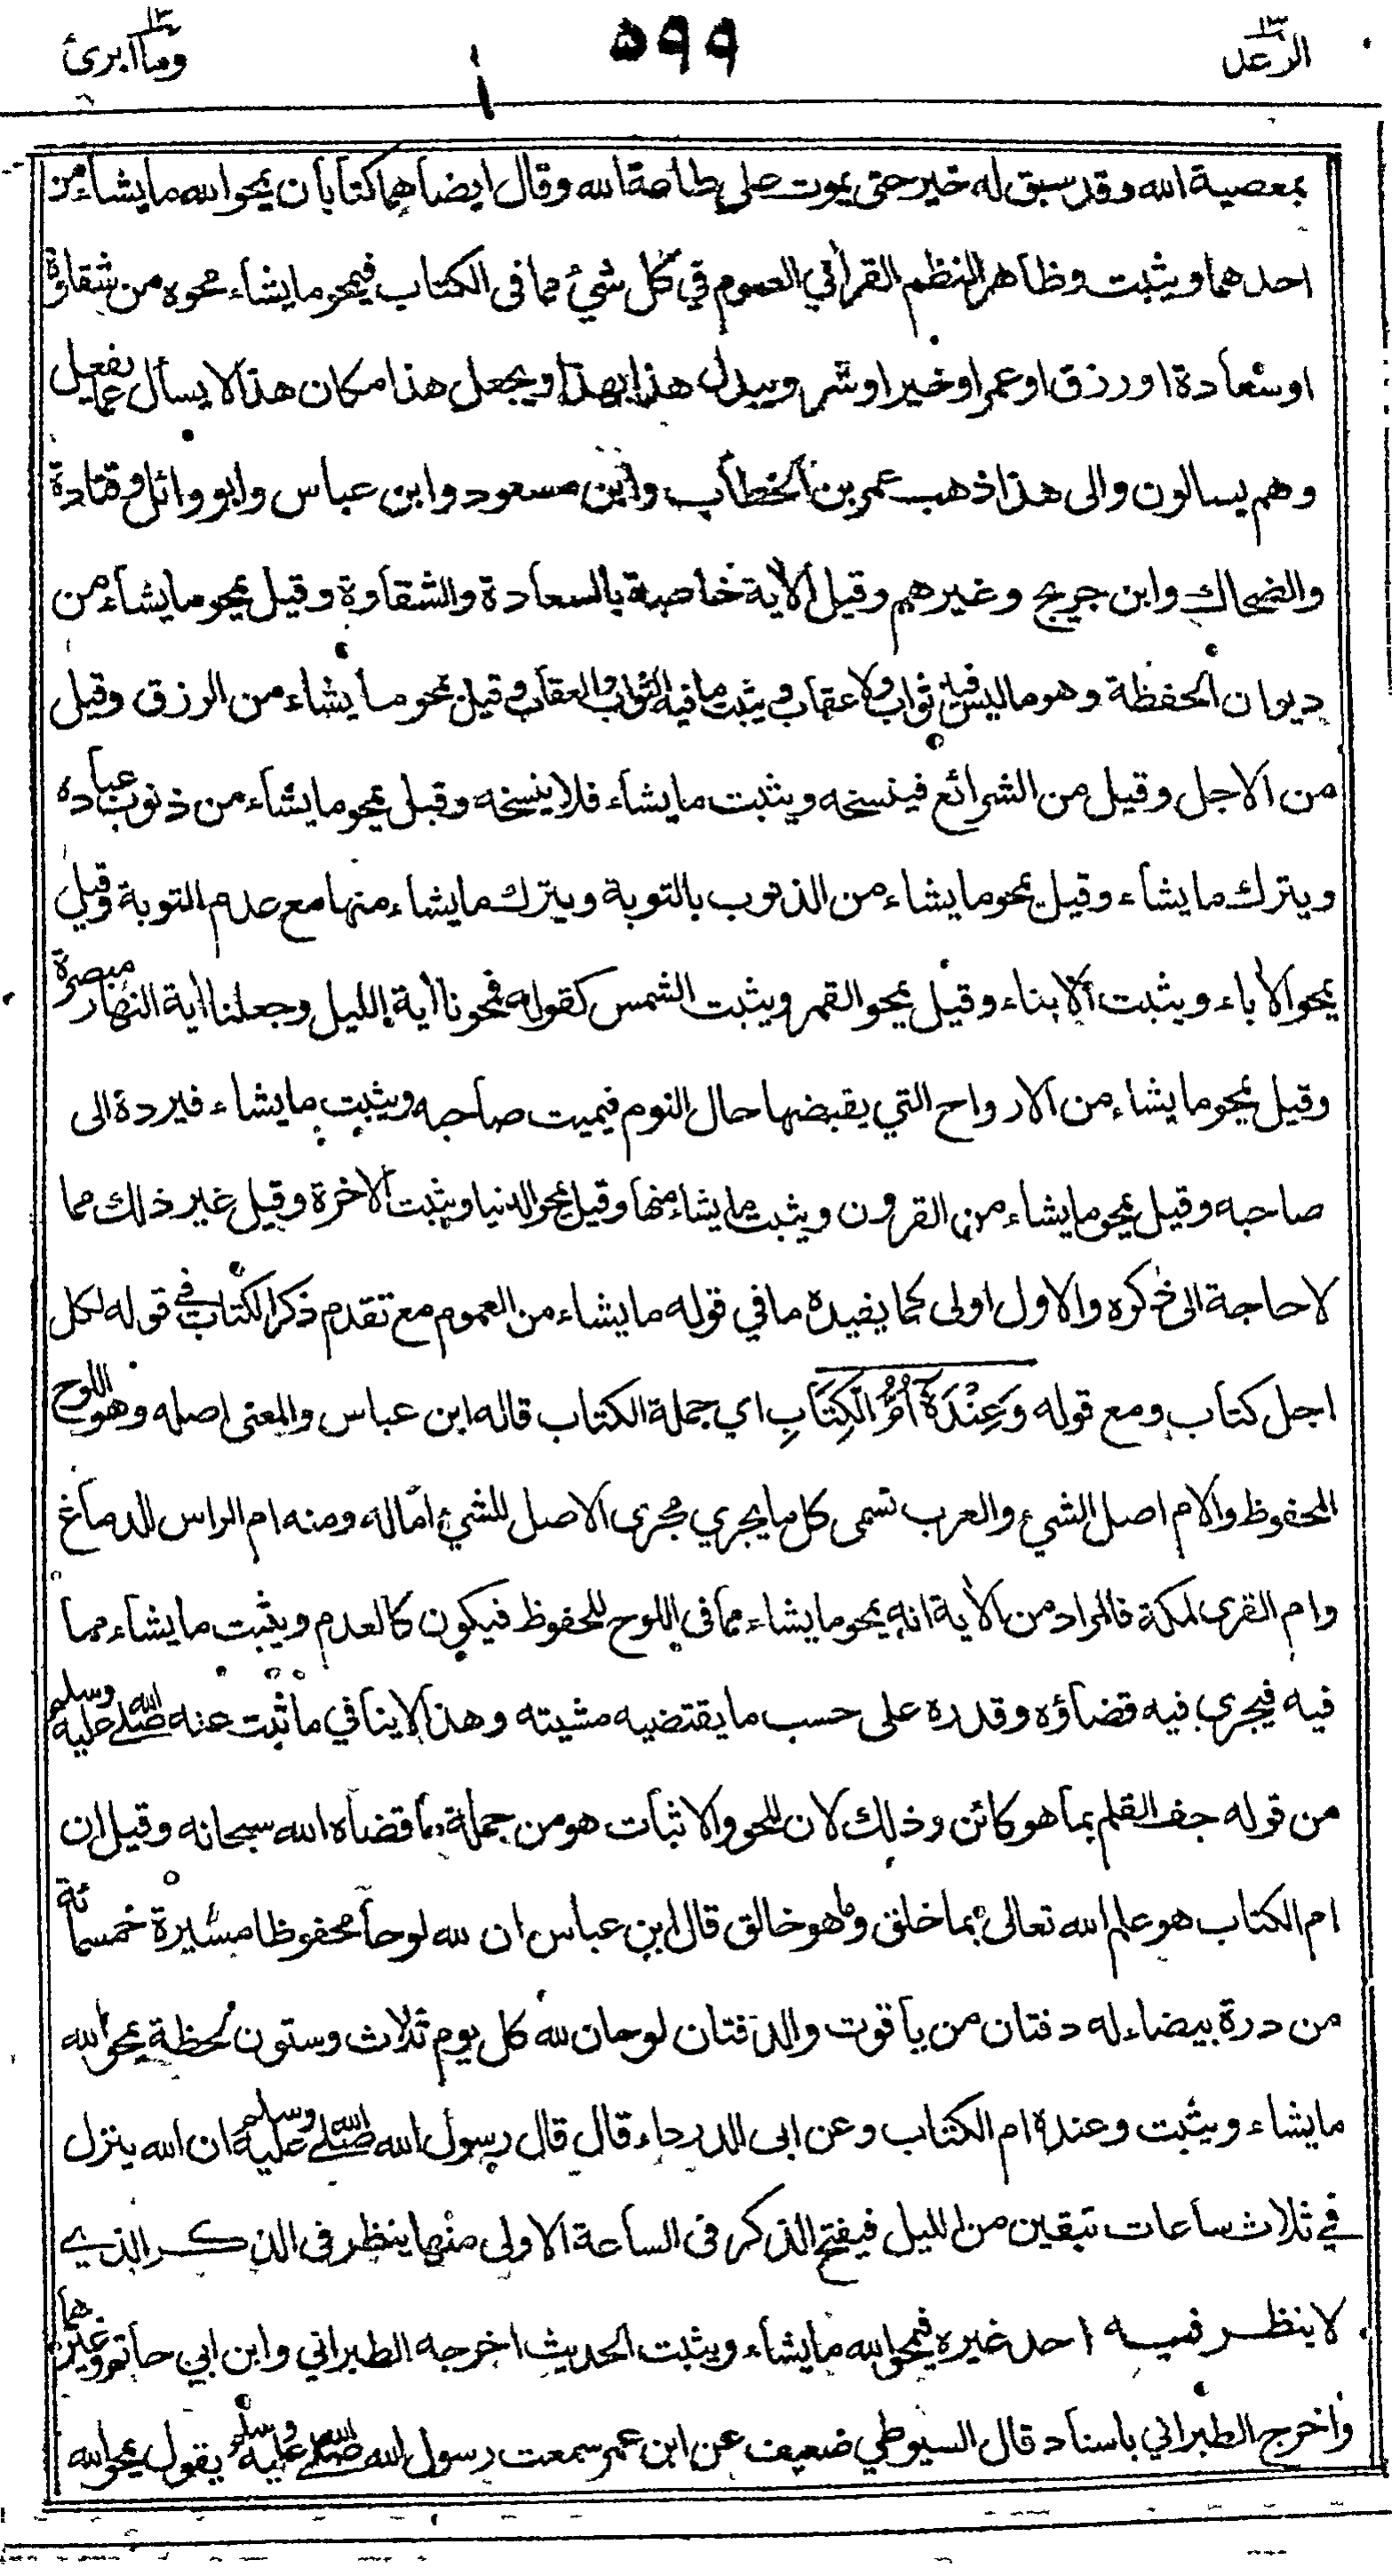 الرعد ١٣
٥٩٩
وما ابرئ ١٣
بمعصية الله وقد سبق له خير حتى يموت على طاعة الله وقال ايضا هما كتابان يمحو الله ما يشاء من
احدهما ويثبت وظاهر النظم القرأني العموم في كل شيء مما فى الكتاب فيمحو ما يشاء محوه من شقاوة
او سعادة او رزق او عمر او خير او شر ويبدل هذا بهذا ويجعل هذا مكان هذا لا يسأل عما يفعل
وهم يسالون والى هذا ذهب عمر بن الخطاب وابن مسعود وابن عباس وابو وائل وقتادة
والضحاك وابن جريج وغيرهم وقيل الأية خاصة بالسعادة والشقاوة وقيل يمحو ما يشاء من
ديوان الحفظة وهو ما ليس فيه ثواب ولا عقاب ويثبت ما فيه الثواب والعقاب وقيل يمحو ما يشاء من الرزق وقيل
من الاجل وقيل من الشرائع فينسخه ويثبت ما يشاء فلا ينسخه وقيل يمحو ما يشاء من ذنوب عباده
ويترك ما يشاء وقيل يمحو ما يشاء من الذنوب بالتوبة ويترك ما يشاء منها مع عدم التوبة وقيل
يمحو الأباء ويثبت الابناء وقيل يمحو القمر ويثبت الشمس كقوله فمحونا أية الليل وجعلنا أية النهار مبصرة
وقيل يمحو ما يشاء من الارواح التي يقبضها حال النوم فيميت صاحبه ويثبت ما يشاء فيردة الى
صاحبه وقيل يمحو ما يشاء من القرون ويثبت ما يشاء منها وقيل يمحو الدنيا ويثبت الأخرة وقيل غير ذلك مما
لا حاجة الى ذكره والاول اولى كما يفيده ما في قوله ما يشاء من العموم مع تقدم ذكر الكتاب في قوله لكل
اجل كتاب ومع قوله وَعِنْدَهٗٓ اُمُّ الْكِتَابِ اي جملة الكتاب قاله ابن عباس والمعنى اصله وهو اللوح
المحفوظ والام اصل الشيء والعرب تسمى كل ما يجري مجرى الاصل للشيء امّا له ومنه ام الراس للدماغ
وام القرى لمكة فالمراد من الأية انه يمحو ما يشاء مما فى اللوح المحفوظ فيكون كالعدم ويثبت ما يشاء مما
فيه فيجري فيه قضاؤه وقدره على حسب ما يقتضيه مشيته وهذا لا ينافي ما ثبت عنه صلى الله عليه وسلم
من قوله جف القلم بما هو كائن وذلك لان المحو والاثبات هو من جملة ما قضاه الله سبحانه وقيل ان
ام الكتاب هو علم الله تعالى بما خلق وما هو خالق قال ابن عباس ان لله لوحا محفوظا مسيرة خمسمائة
من درة بيضاء له دفتان من ياقوت والدفتان لوحان لله كل يوم ثلاث وستون لحظة يمحو الله
ما يشاء ويثبت وعنده ام الكتاب وعن ابى الدرداء قال قال رسول الله صلى الله عليه وسلم ان الله ينزل
في ثلاث ساعات تبقين من الليل فيفتح الذكر فى الساعة الاولى منها ينظر فى الذكر الذي
لا ينظر فيه احد غيره فيمحو الله ما يشاء ويثبت الحديث اخرجه الطبراني وابن ابي حاتم وغيرهما
واخرج الطبراني باسناد قال السيوطي ضعيف عن ابن عمر سمعت رسول الله صلى الله عليه وسلم يقول يمحو الله